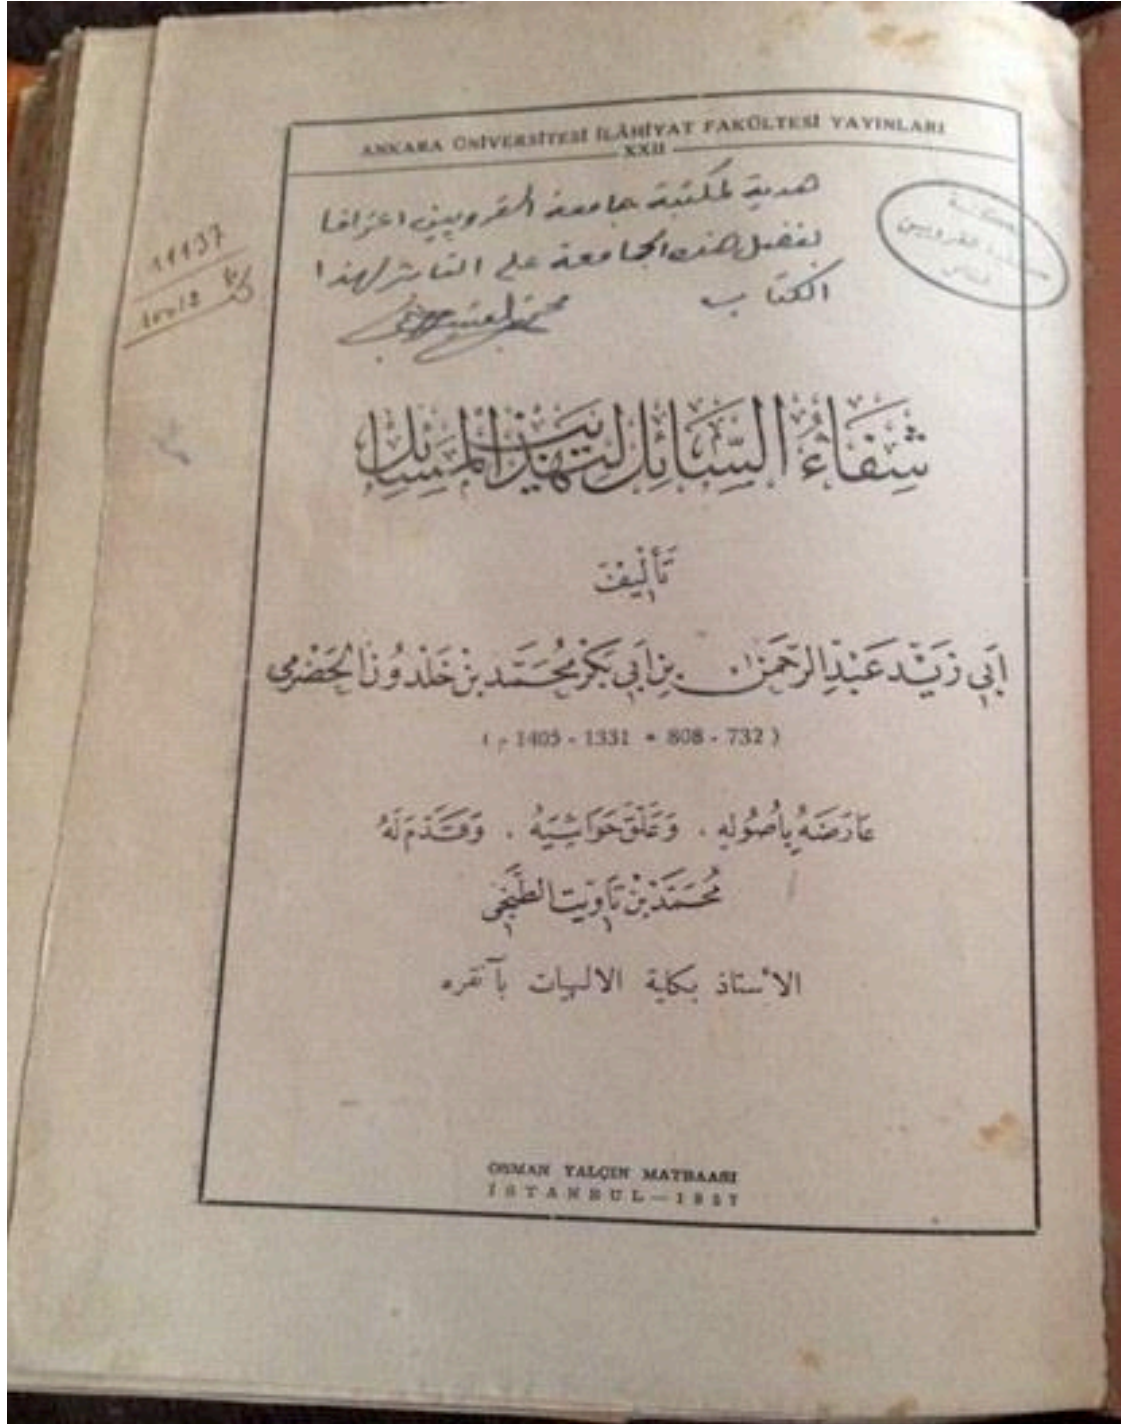 ANKARA ÜNİVERSİTESİ İLÂHİYAT FAKÜLTESİ YAYINLARI
XXII
هدية لمكتبة جامعة القرويين اعترافا
بفضل هذه الجامعة على الناشر لهذا
الكتاب
مكتبة
القرويين
11137
شِفَاءُ السَّائِل لتهذيب المَسَائِل
تَأليفُ
ابَي زَيْد عَبْدِ الرَّحمَن بِن ابَي بَكرْ محُمَّد بن خَلدُونْ الحَضْرمي
( 732 - 808 = 1331 - 1405 م )
عَارَضَهُ باُصُوله . وَعَلّقَ حَوَاشِيَهُ . وَقَدَّمَ لَهُ
مُحَمَّد بْن تَاوِيت الطَّنجَي
الأستاذ بكلية الالهيات بآنقره
OSMAN YALÇIN MATBAASI
İSTANBUL — 1957